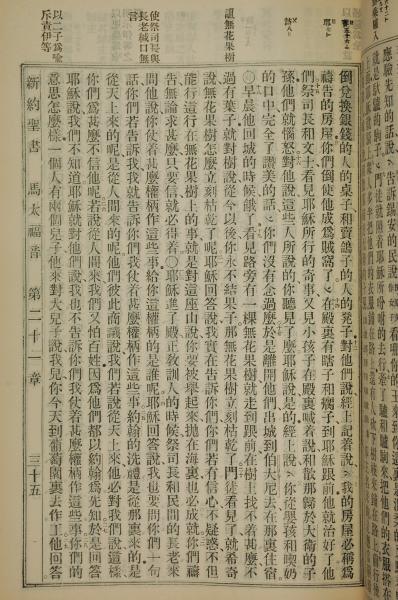 詛無花果樹
使祭司長與
長老緘口無
言
以二子為喻
斥責伊等
倒兌換銀錢的人的桌子和賣鴿子的人的凳子對他們說經上記着說我的房屋必稱為
禱告的房屋你們倒使他成為賊窩了在殿裏有瞎子和瘸子到耶穌跟前他就治好了他
們祭司長和文士看見耶穌所行的奇事又見小孩子在殿裏喊着說和散那歸於大衛的子
孫他們就惱怒對他說這些人所說的你聽見了麼耶穌說是的經上說你從嬰孩和喫奶
的口中完全了讚美的話你們沒有念過麼於是離開他們出城到伯大尼去在那裏住宿
○早晨他回城的時候餓了看見路旁有一棵無花果樹就走到跟前在樹上找不着甚麼不
過有葉子就對樹說從今以後你永不結果子那無花果樹立刻枯乾了門徒看見了就希奇
說無花果樹怎麼立刻枯乾了呢耶穌回答說我實在告訴你們你們若有信心不疑惑不但
能行這行在無花果樹上的事就是對這座山說你要被舉起來拋在海裏也必成就你們禱
告無論求甚麼只要信就必得着○耶穌進了殿正教訓人的時候祭司長和民間的長老來
問他說你仗着甚麼權柄作這些事給你這權柄的是誰呢耶穌回答說我也要問你們一句
話你們若告訴我我就告訴你們我仗着甚麼權柄作這些事約翰的洗禮是從那裏來的是
從天上來的呢是從人間來的呢他們彼此商議說我們若說從天上來他必對我們說這樣
你們為甚麼不信他呢若說從人間來我們又怕百姓因為他們都以約翰為先知於是回答
耶穌說我們不知道耶穌就對他們說我也不告訴你們我仗着甚麼權柄作這些事你們的
意思怎麼樣一個人有兩個兒子他來對大兒子說我兒你今天到葡萄園裏去作工他回答
新約聖書 馬太福音 第二十一章 三十五